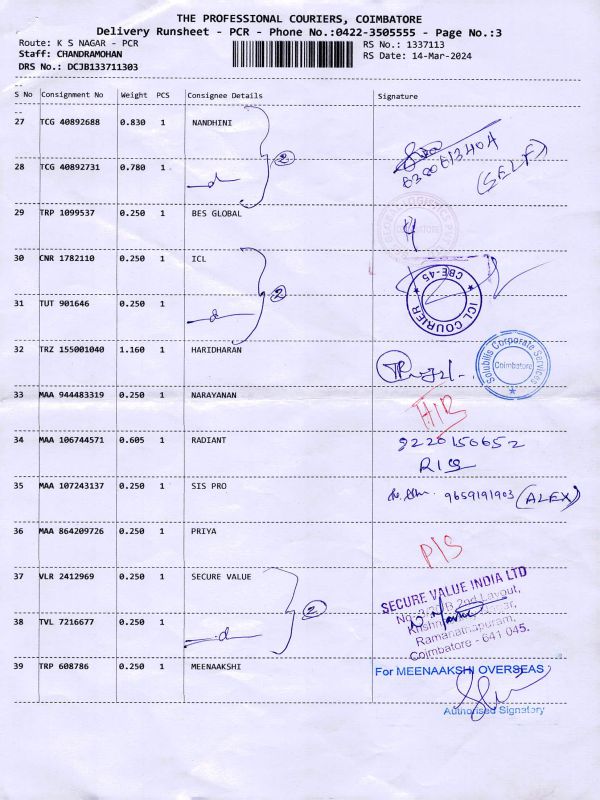 THE PROFESSIONAL COURIERS, COIMBATORE
Delivery Runsheet - PCR - Phone No.:0422-3505555 - Page No.:3
Route: K S NAGAR - PCR
RS No.: 1337113
Staff: CHANDRAMOHAN
RS Date: 14-Mar-2024
DRS No.: DCJB133711303
S No Consignment No Weight PCS Consignee Details Signature
27 TCG 40892688 0.830 1 NANDHINI
28 TCG 40892731 0.780 1
2
(SELF)
29 TRP 1099537 0.250 1 BES GLOBAL
30 CNR 1782110 0.250 1 ICL
31 TUT 901646 0.250 1
2
ICL COURIER CBE-45
32 TRZ 155001040 1.160 1 HARIDHARAN
Solubilis Corporate Services
Coimbatore
33 MAA 944483319 0.250 1 NARAYANAN
34 MAA 106744571 0.605 1 RADIANT
9220150652
35 MAA 107243137 0.250 1 SIS PRO
9659191903 (ALEX)
36 MAA 864209726 0.250 1 PRIYA
P/S
37 VLR 2412969 0.250 1 SECURE VALUE
38 TVL 7216677 0.250 1
2
SECURE VALUE INDIA LTD
2nd Layout,
Ramanathapuram,
Coimbatore - 641 045.
39 TRP 608786 0.250 1 MEENAAKSHI
For MEENAAKSHI OVERSEAS
Authorised Signatory